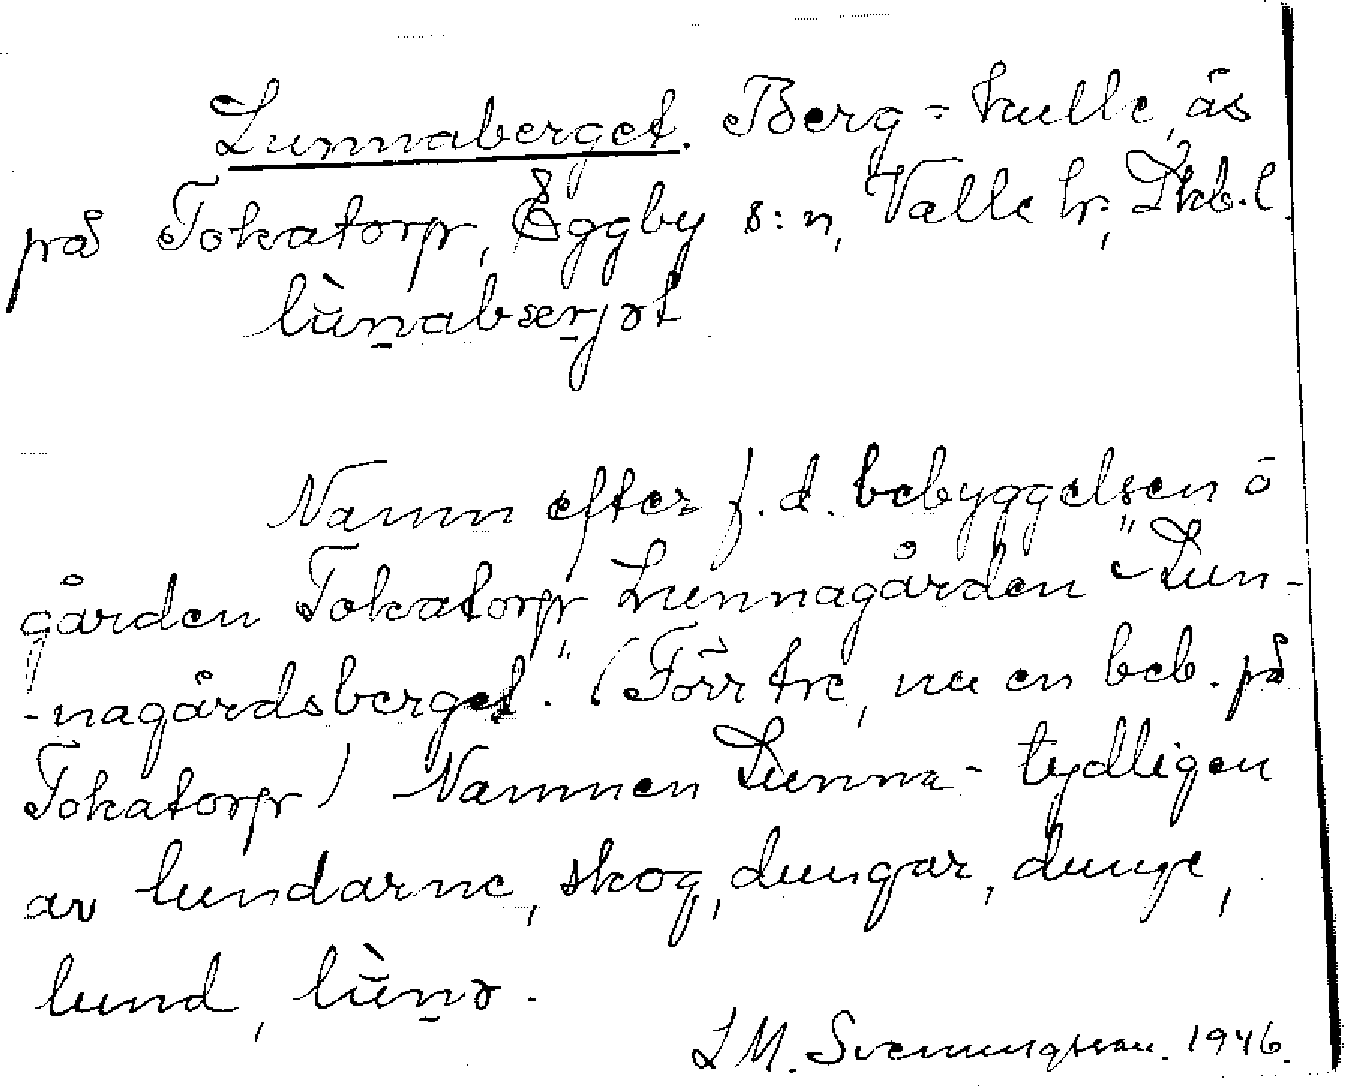 Lunnaberget. Berg=kulle, ås
på Tokatorp, Eggby s:n, Valle hr, Skb.l.
lùn̠abær̠jət
Namn efter f.d. bebyggelsen å
gården Tokatorp, Lunnagården "Lun-
-nagårdsberget". (Förr tre, nu en beb. på
Tokatorp) Namnen Lunna- tydligen
av lundarne, skog, dungar, dunge,
lund, lùn̠ə.
L M. Svenungsson. 1946.